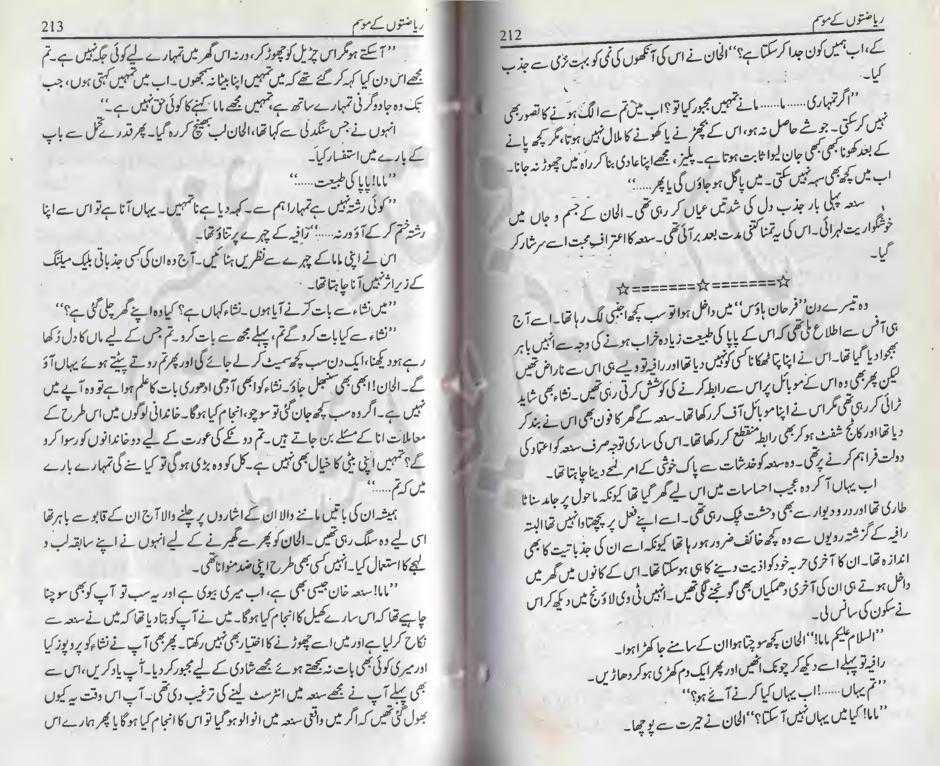 ریاضتوں کے موسم
212
کے، اب ہمیں کون جدا کر سکتا ہے؟“ الحان نے اس کی آنکھوں کی نمی کو بہت نرمی سے جذب
کیا۔
”اگر تمہاری...... ما...... مانے تمہیں مجبور کیا تو؟ اب میں تم سے الگ ہونے کا تصور بھی
نہیں کر سکتی۔ جو شے حاصل نہ ہو، اس کے بچھڑنے یا کھونے کا ملال نہیں ہوتا، مگر کچھ پانے
کے بعد کھونا کبھی کبھی جان لیوا ثابت ہوتا ہے۔ پلیز، مجھے اپنا عادی بنا کر راہ میں چھوڑ نہ جانا۔
اب میں کچھ بھی سہہ نہیں سکتی۔ میں پاگل ہو جاؤں گی یا پھر.....“
سنعہ پہلی بار جذب دل کی شدتیں عیاں کر رہی تھی۔ الحان کے جسم و جاں میں
خوشگواریت لہرائی۔ اس کی یہ تمنا کتنی مدت بعد بر آئی تھی۔ سنعہ کا اعترافِ محبت اسے سرشار کر
گیا۔
☆=======☆=======☆
وہ تیسرے دن ”فرحان ہاؤس“ میں داخل ہوا تو سب کچھ اجنبی لگ رہا تھا۔ اسے آج
ہی آفس سے اطلاع ملی تھی کہ اس کے پاپا کی طبیعت زیادہ خراب ہونے کی وجہ سے انہیں باہر
بھجوا دیا گیا تھا۔ اس نے اپنا پتا ٹھکانا کسی کو نہیں دیا تھا اور رافیہ تو ویسے ہی اس سے ناراض تھیں
لیکن پھر بھی وہ اس کے موبائل پر اس سے رابطہ کرنے کی کوشش کرتی رہی تھیں۔ نشاء بھی شاید
ٹرائی کر رہی تھی مگر اس نے اپنا موبائل آف کر رکھا تھا۔ سنعہ کے گھر کا فون بھی اس نے بند کر
دیا تھا اور کاٹج شفٹ ہو کر بھی رابطہ منقطع کر رکھا تھا۔ اس کی ساری توجہ صرف سنعہ کو اعتماد کی
دولت فراہم کرنے پر تھی۔ وہ سنعہ کو خدشات سے پاک خوشی کے امر لمحے دینا چاہتا تھا۔
اب یہاں آ کر وہ عجیب احساسات میں اس لیے گھر گیا تھا کیونکہ ماحول پر جامد سناٹا
طاری تھا اور در و دیوار سے بھی وحشت ٹپک رہی تھی۔ اسے اپنے فعل پر پچھتاوا نہیں تھا البتہ
رافیہ کے گزشتہ رویوں سے وہ کچھ خائف ضرور ہو رہا تھا کیونکہ اسے ان کی جذباتیت کا بھی
اندازہ تھا۔ ان کا آخری حربہ خود کو اذیت دینے کا ہی ہو سکتا تھا۔ اس کے کانوں میں گھر میں
داخل ہوتے ہی ان کی آخری دھمکیاں بھی گونجنے لگی تھیں۔ انہیں ٹی وی لاؤنج میں دیکھ کر اس
نے سکون کی سانس لی۔
”السلام علیکم ماما!“ الحان کچھ سوچتا ہوا ان کے سامنے جا کھڑا ہوا۔
رافیہ تو پہلے اسے دیکھ کر چونک اٹھیں اور پھر ایک دم کھڑی ہو کر دھاڑیں۔
”تم یہاں......! اب یہاں کیا کرنے آئے ہو؟“
”ماما! کیا میں یہاں نہیں آ سکتا؟“ الحان نے حیرت سے پوچھا۔
ریاضتوں کے موسم
213
”آ سکتے ہو مگر اس چڑیل کو چھوڑ کر، ورنہ اس گھر میں تمہارے لیے کوئی جگہ نہیں ہے۔ تم
مجھے اس دن کیا کہہ کر گئے تھے کہ میں تمہیں اپنا بیٹا نہ سمجھوں۔ اب میں تمہیں کہتی ہوں، جب
تک وہ جادوگرنی تمہارے ساتھ ہے، تمہیں مجھے ماما کہنے کا کوئی حق نہیں ہے۔“
انہوں نے جس سنگدلی سے کہا تھا، الحان لب بھینچ کر رہ گیا۔ پھر قدرے تحمل سے باپ
کے بارے میں استفسار کیا۔
”ماما! پاپا کی طبیعت......“
”کوئی رشتہ نہیں ہے تمہارا ہم سے۔ کہہ دیا ہے نا تمہیں۔ یہاں آنا ہے تو اس سے اپنا
رشتہ ختم کر کے آؤ ورنہ......“ رافیہ کے چہرے پر تناؤ تھا۔
اس نے اپنی ماما کے چہرے سے نظریں ہٹائیں۔ آج وہ ان کی کسی جذباتی بلیک میلنگ
کے زیر اثر نہیں آنا چاہتا تھا۔
”میں نشاء سے بات کرنے آیا ہوں۔ نشاء کہاں ہے؟ کیا وہ اپنے گھر چلی گئی ہے؟“
”نشاء سے کیا بات کرو گے تم، پہلے مجھ سے بات کرو۔ تم، جس کے لیے ماں کا دل دُکھا
رہے ہو دیکھنا، ایک دن سب کچھ سمیٹ کر لے جائے گی اور پھر تم روتے پیٹتے ہوئے یہاں آؤ
گے۔ الحان! ابھی بھی سنبھل جاؤ۔ نشاء کو ابھی آدھی ادھوری بات کا علم ہوا ہے تو وہ آپے میں
نہیں ہے۔ اگر وہ سب کچھ جان گئی تو سوچو، انجام کیا ہوگا۔ خاندانی لوگوں میں اس طرح کے
معاملات انا کے مسئلے بن جاتے ہیں۔ تم دو ٹکے کی عورت کے لیے دو خاندانوں کو رسوا کرو
گے؟ تمہیں اپنی بیٹی کا خیال بھی نہیں ہے۔ کل کو وہ بڑی ہو گی تو کیا سنے گی تمہارے بارے
میں کہ تم......“
ہمیشہ ان کی باتیں ماننے والا ان کے اشاروں پر چلنے والا آج ان کے قابو سے باہر تھا
اسی لیے وہ سلگ رہی تھیں۔ الحان کو پھر سے گھیرنے کے لیے انہوں نے اپنے سابقہ لب و
لہجے کا استعمال کیا۔ انہیں کسی بھی طرح اپنی ضد منوانا تھی۔
”ماما! سنعہ خان جیسی بھی ہے، اب میری بیوی ہے اور یہ سب تو آپ کو بھی سوچنا
چاہیے تھا کہ اس سارے کھیل کا انجام کیا ہوگا۔ میں نے آپ کو بتا دیا تھا کہ میں نے سنعہ سے
نکاح کر لیا ہے اور میں اسے چھوڑنے کا اختیار بھی نہیں رکھتا۔ پھر بھی آپ نے نشاء کو پروپوز کیا
اور میری کوئی بھی بات نہ سمجھتے ہوئے مجھے شادی کے لیے مجبور کر دیا۔ آپ یاد کریں، اس سے
بھی پہلے آپ نے مجھے سنعہ میں انٹرسٹ لینے کی ترغیب دی تھی۔ آپ اس وقت یہ کیوں
بھول گئی تھیں کہ اگر میں واقعی سنعہ میں انوالو ہو گیا تو اس کا انجام کیا ہوگا یا پھر ہمارے اس